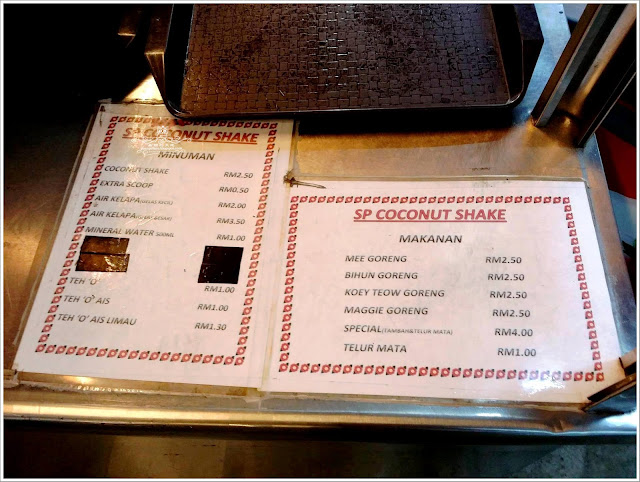 SP COCONUT SHAKE
MINUMAN
COCONUT SHAKE RM2.50
EXTRA SCOOP RM0.50
AIR KELAPA(GELAS KECIL) RM2.00
AIR KELAPA(GELAS BESAR) RM3.50
MINERAL WATER 500ML RM1.00
TEH 'O' RM1.00
TEH 'O' AIS RM1.00
TEH 'O' AIS LIMAU RM1.30
SP COCONUT SHAKE
MAKANAN
MEE GORENG RM2.50
BIHUN GORENG RM2.50
KOEY TEOW GORENG RM2.50
MAGGIE GORENG RM2.50
SPECIAL(TAMBAH&TELUR MATA) RM4.00
TELUR MATA RM1.00